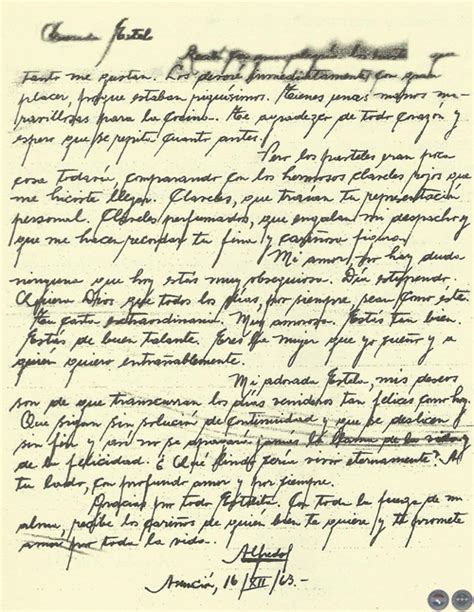 Estel
que
tanto me gustan. Los devoré inmediatamente con gran
placer, porque estaban riquísimos. Tienes unas manos ma-
ravillosas para la cocina. Te agradezco de todo corazón y
espero que se repita cuanto antes.
Pero los pasteles eran poca
cosa todavía comparando con los hermosos claveles rojos que
me hiciste llegar. Claveles, que traían tu representación
personal. Claveles perfumados, que engalan mi despacho y
que me hacen recordar tu fina y cariñosa figura.
Mi amor, no hay duda
ninguna que hoy estás muy obsequiosa. Día estupendo.
Quiera Dios que todos los días, por siempre, sean como este.
Tu carta extraordinaria. Muy amorosa. Estás tan bien.
Estás de buen talante. Eres la mujer que yo sueño y a
quien quiero entrañablemente.
Mi adorada Estela, mis deseos
son de que transcurran los días venideros tan felices como hoy.
Que sigan sin solución de continuidad y que se deslicen
sin fin y que no se apague jamás la llama de la vida y
de la felicidad. ¿Qué lindo sería vivir eternamente? Al
tu lado, con profundo amor y por siempre.
Gracias por todo Estelita. Con toda la fuerza de mi
alma, recibe los cariños de quién bien te quiere y te promete
amar por toda la vida.
Alfredo
Asunción, 16/XII/63.-